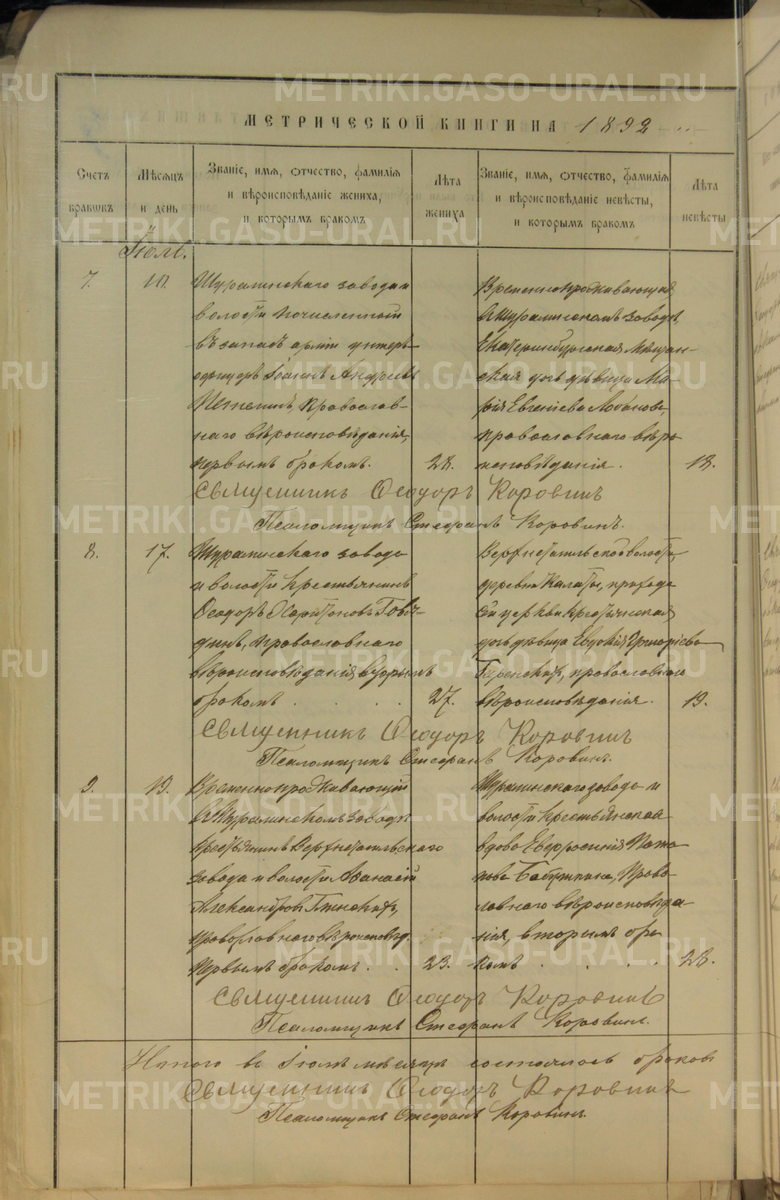 METRIKI.GASO-URAL.RU
МЕТРИЧЕСКОЙ КНИГИ НА 1892
Счетъ браковъ
Мѣсяцъ и день
Званіе, имя, отчество, фамилія и вѣроисповѣданіе жениха, и которымъ бракомъ
Лѣта жениха
Званіе, имя, отчество, фамилія и вѣроисповѣданіе невѣсты, и которымъ бракомъ
Лѣта невѣсты
7.
Шуралинскаго завода и
волости зачисленный
въ запасъ арміи унтеръ-
офицеръ Іоаннъ Андреевъ
православ-
наго вѣроисповѣданія,
первымъ бракомъ. 28.
Временно проживающая
въ Шуралинскомъ заводѣ,
Екатеринбургская мѣщан-
ская дочь дѣвица Ма-
рія Евгеніева Лобанова,
православнаго вѣро
исповѣданія. 18.
Священникъ Ѳеодоръ Коровинъ
Псаломщикъ Стефанъ Коровинъ.
8. 17.
Шуралинскаго завода
и волости крестьянинъ
Ѳеодоръ Харитоновъ
православнаго
вѣроисповѣданія, вторымъ
бракомъ. 27.
Верхнетагильской волости,
деревни Калаты, прихода
церкви крестьянская
дочь дѣвица Евдокія Григоріева
православнаго
вѣроисповѣданія. 19.
Священникъ Ѳеодоръ Коровинъ
Псаломщикъ Стефанъ Коровинъ.
9. 19.
Временно проживающій
въ Шуралинскомъ заводѣ
крестьянинъ Верхнетагильскаго
завода и волости Аѳанасій
Александровъ
православнаго вѣроисповѣд.
первымъ бракомъ. 23.
Шуралинскаго завода и
волости крестьянская
вдова Евфросинія Пота
пова Бабушкина, право
славнаго вѣроисповѣда
нія, вторымъ бра
комъ. 28.
Священникъ Ѳеодоръ Коровинъ
Псаломщикъ Стефанъ Коровинъ.
Итого въ Іюлѣ мѣсяцѣ состоялось браковъ
Священникъ Ѳеодоръ Коровинъ
Псаломщикъ Стефанъ Коровинъ.